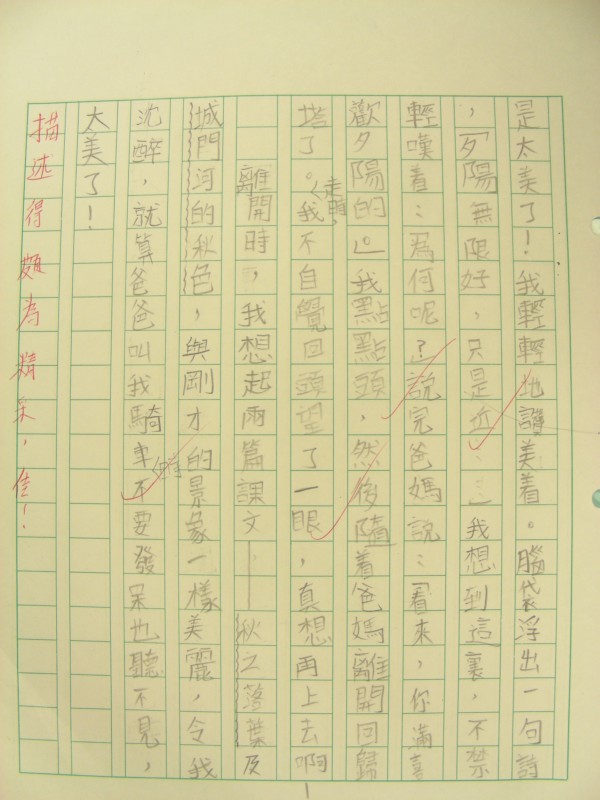 是太美了！我輕輕地讚美着。腦袋浮出一句詩
，「夕陽無限好，只是近……」我想到這裏，不禁
輕嘆着：「為何呢？」說完爸媽說：「看來，你滿喜
歡夕陽的。」我點點頭，然後隨着爸媽離開回歸
塔了。走前，我不自覺回頭望了一眼，真想再上去啊
離開時，我想起兩篇課文——秋之落葉及
城門河的秋色，與剛才的景象一樣美麗，令我
沈醉，就算爸爸叫我騎車不要發呆也聽不見，
太美了！
描述得頗為精采，佳！